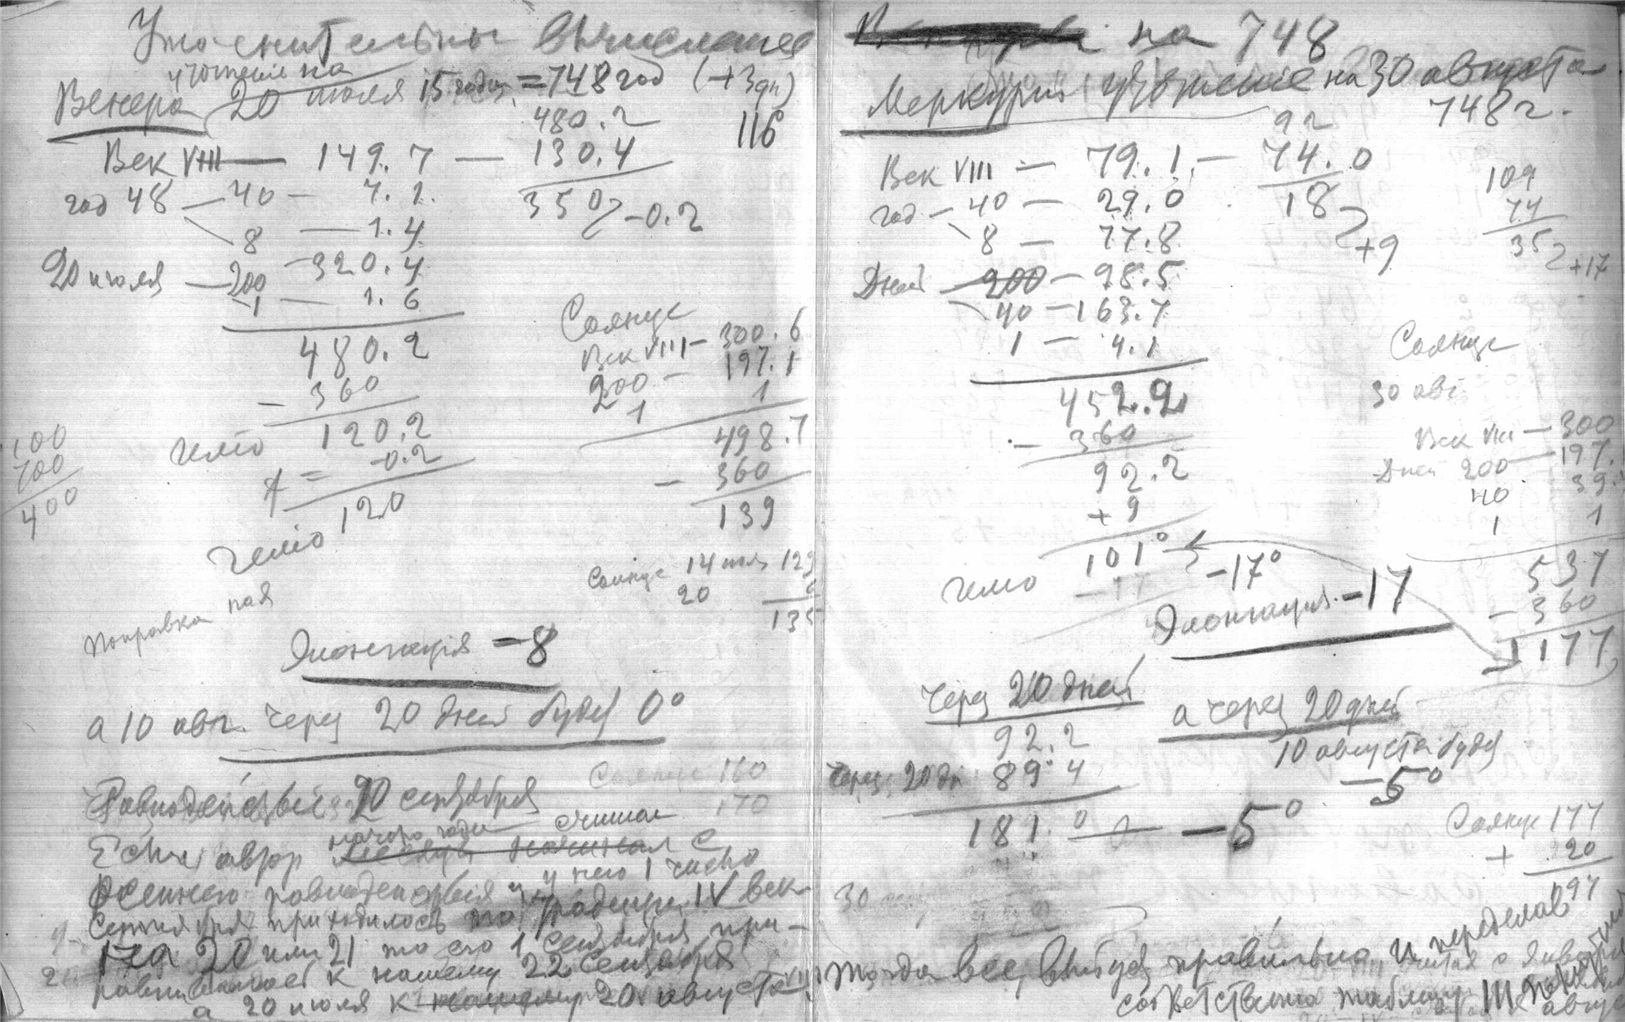 Уточнительны вычисление
уточнение на
Венера 20 июля 15 года = 748 год (+3дн)
480.2 116
Век VIII — 149.7 — 130.4
год 48 — 40 — 7.1 350 } -0.2
8 — 1.4
20 июля — 200 — 320.4
1 — 1.6
480.2
- 360
гелио 120.2
-0.2
120
гелио
Поправка
100
200
400
Солнце
Век VIII — 300.6
200 — 197.1
1 1
498.7
- 360
139
Солнце 14 июл. 129
20 6
135
Элонгация -8
а 10 авг. через 20 дней будет 0°
Солнце 160
170
Равноденствие 20 сентября
начало года считал
Если автор начинал с
осеннего равноденствия и у него 1 число
сентября приходилось по традиции IV век
на 20 или 21 то его 1 сентября при-
равнивает к нашему 22 сентября
а 20 июля к нашему 20 августа
на 748
Меркурий уточнение на 30 августа
748 г.
92
Век VIII — 79.1 — 74.0
год — 40 — 29.0 18 } +9
8 — 77.8
Дней 200 — 98.5
40 — 163.7
1 — 4.1
452.2
- 360
92.2
+ 9
101°
гелио -17
-17°
109
74
35 } +17
Солнце
30 авг
Век VIII — 300
Дней 200 — 197.
40 39.
1 1
537
- 360
177
Элонгация -17
Через 20 дней
92.2
через 20 дн 89.4
181.° — -5°
а через 20 дней
10 августа будет
-5°
Солнце 177
+ 20
197
30
Тогда все выйдет правильно и переделав
соответственно таблицу III